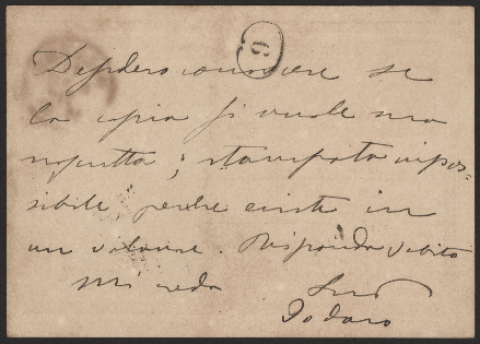 Desidero conoscere se
la copia si vuole ma
noscritta; stampata impos=
sibile, perchè esiste in
un volume. Risponda subito
Mi creda
Suo
Todaro